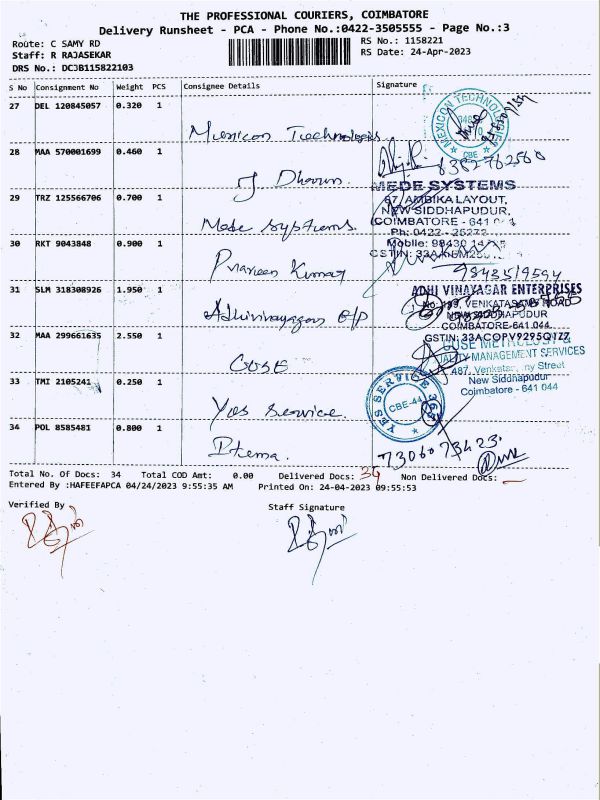 THE PROFESSIONAL COURIERS, COIMBATORE
Delivery Runsheet - PCA - Phone No.:0422-3505555 - Page No.:3
Route: C SAMY RD
RS No.: 1158221
Staff: R RAJASEKAR
RS Date: 24-Apr-2023
DRS No.: DCJB115822103
S No Consignment No Weight PCS Consignee Details Signature
27 DEL 120845057 0.320 1
MEXICON TECHNOLOGIES
CBE
28 MAA 570001699 0.460 1
J Dharun.
29 TRZ 125566706 0.700 1
Mede systems.
MEDE SYSTEMS
67, AMBIKA LAYOUT,
NEW SIDDHAPUDUR,
COIMBATORE - 641
Ph: 0422 -
Mobile: 98430
GSTIN:
30 RKT 9043848 0.900 1
Praveen Kumar
9843519594
31 SLM 318308926 1.950 1
ADHI VINAYAGAR ENTERPRISES
VENKATASAMY ROAD
NEW SIDDHAPUDUR
COIMBATORE-641 044.
GSTIN: 33ACOPV9295Q1ZZ
32 MAA 299661635 2.550 1
GUSE METROLOGY &
QUALITY MANAGEMENT SERVICES
487, Street
New Siddhapudur
Coimbatore - 641 044
33 TMI 2105241 0.250 1
Yes Service.
YES SERVICE
CBE-44
34 POL 8585481 0.800 1
7306073423
Total No. Of Docs: 34 Total COD Amt: 0.00 Delivered Docs: 34 Non Delivered Docs:
Entered By :HAFEEFAPCA 04/24/2023 9:55:35 AM Printed On: 24-04-2023 09:55:53
Verified By
Staff Signature